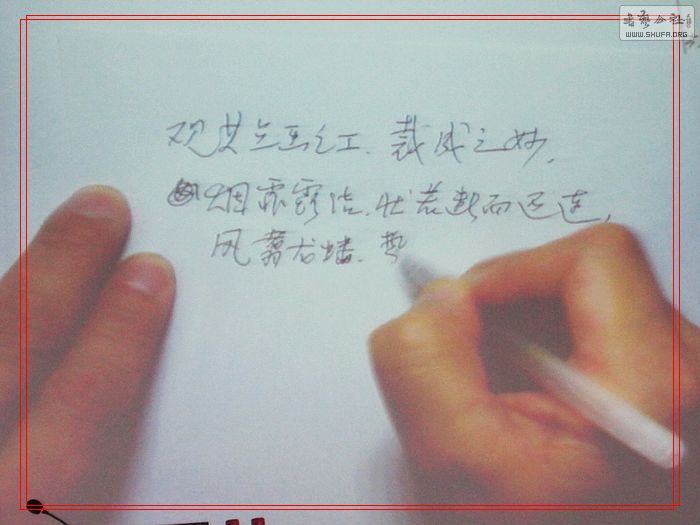 书艺公社
WWW.SHUFA.ORG
观其点曳之工,裁成之妙,
烟霏露结,状若断而还连,
凤翥龙蟠,势